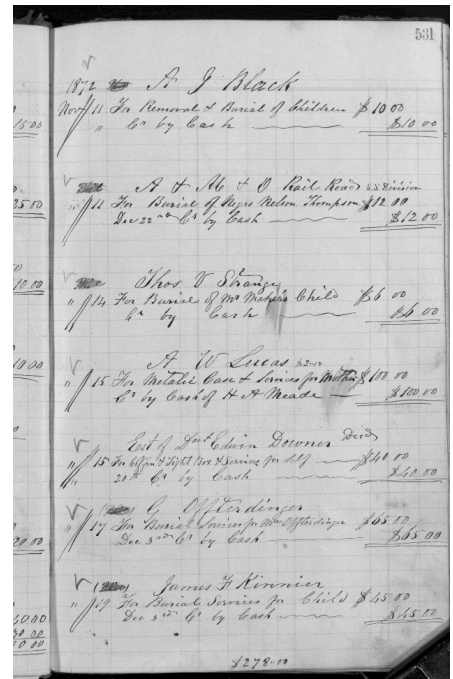 531
1872 A J Black
Nov 11 For Removal & Burial of Children $10 00
" Cr by Cash $10 00
A & M & O Rail Road S.S Division
" 11 For Burial of Negro Nelson Thompson $12 00
Dec 22nd Cr by Cash $12 00
Thos. V Strange
" 14 For Burial of Mr Maker's Child $6 00
Cr by Cash $6 00
A W Lucas
" 15 For Metalic Case & Services for Mother $100 00
Cr by Cash of H A Meade $100 00
Est of Edwin Downer Decd
" 15 For Coffin & Tight Box & Services for Self $40 00
20th Cr by Cash $40 00
G Offterdinger
" 17 For Burial Services for Mrs Offterdinger $65 00
Dec 3rd Cr by Cash $65 00
James F Kinnier
" 19 For Burial Services for Child $45 00
Dec 3rd Cr by Cash $45 00
$278.00
15 00
25 50
10 00
10 00
20 00
40 00
30 00